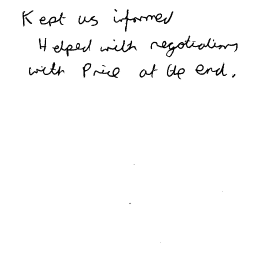 Kept us informed
Helped with negotiations
with Price at the end.